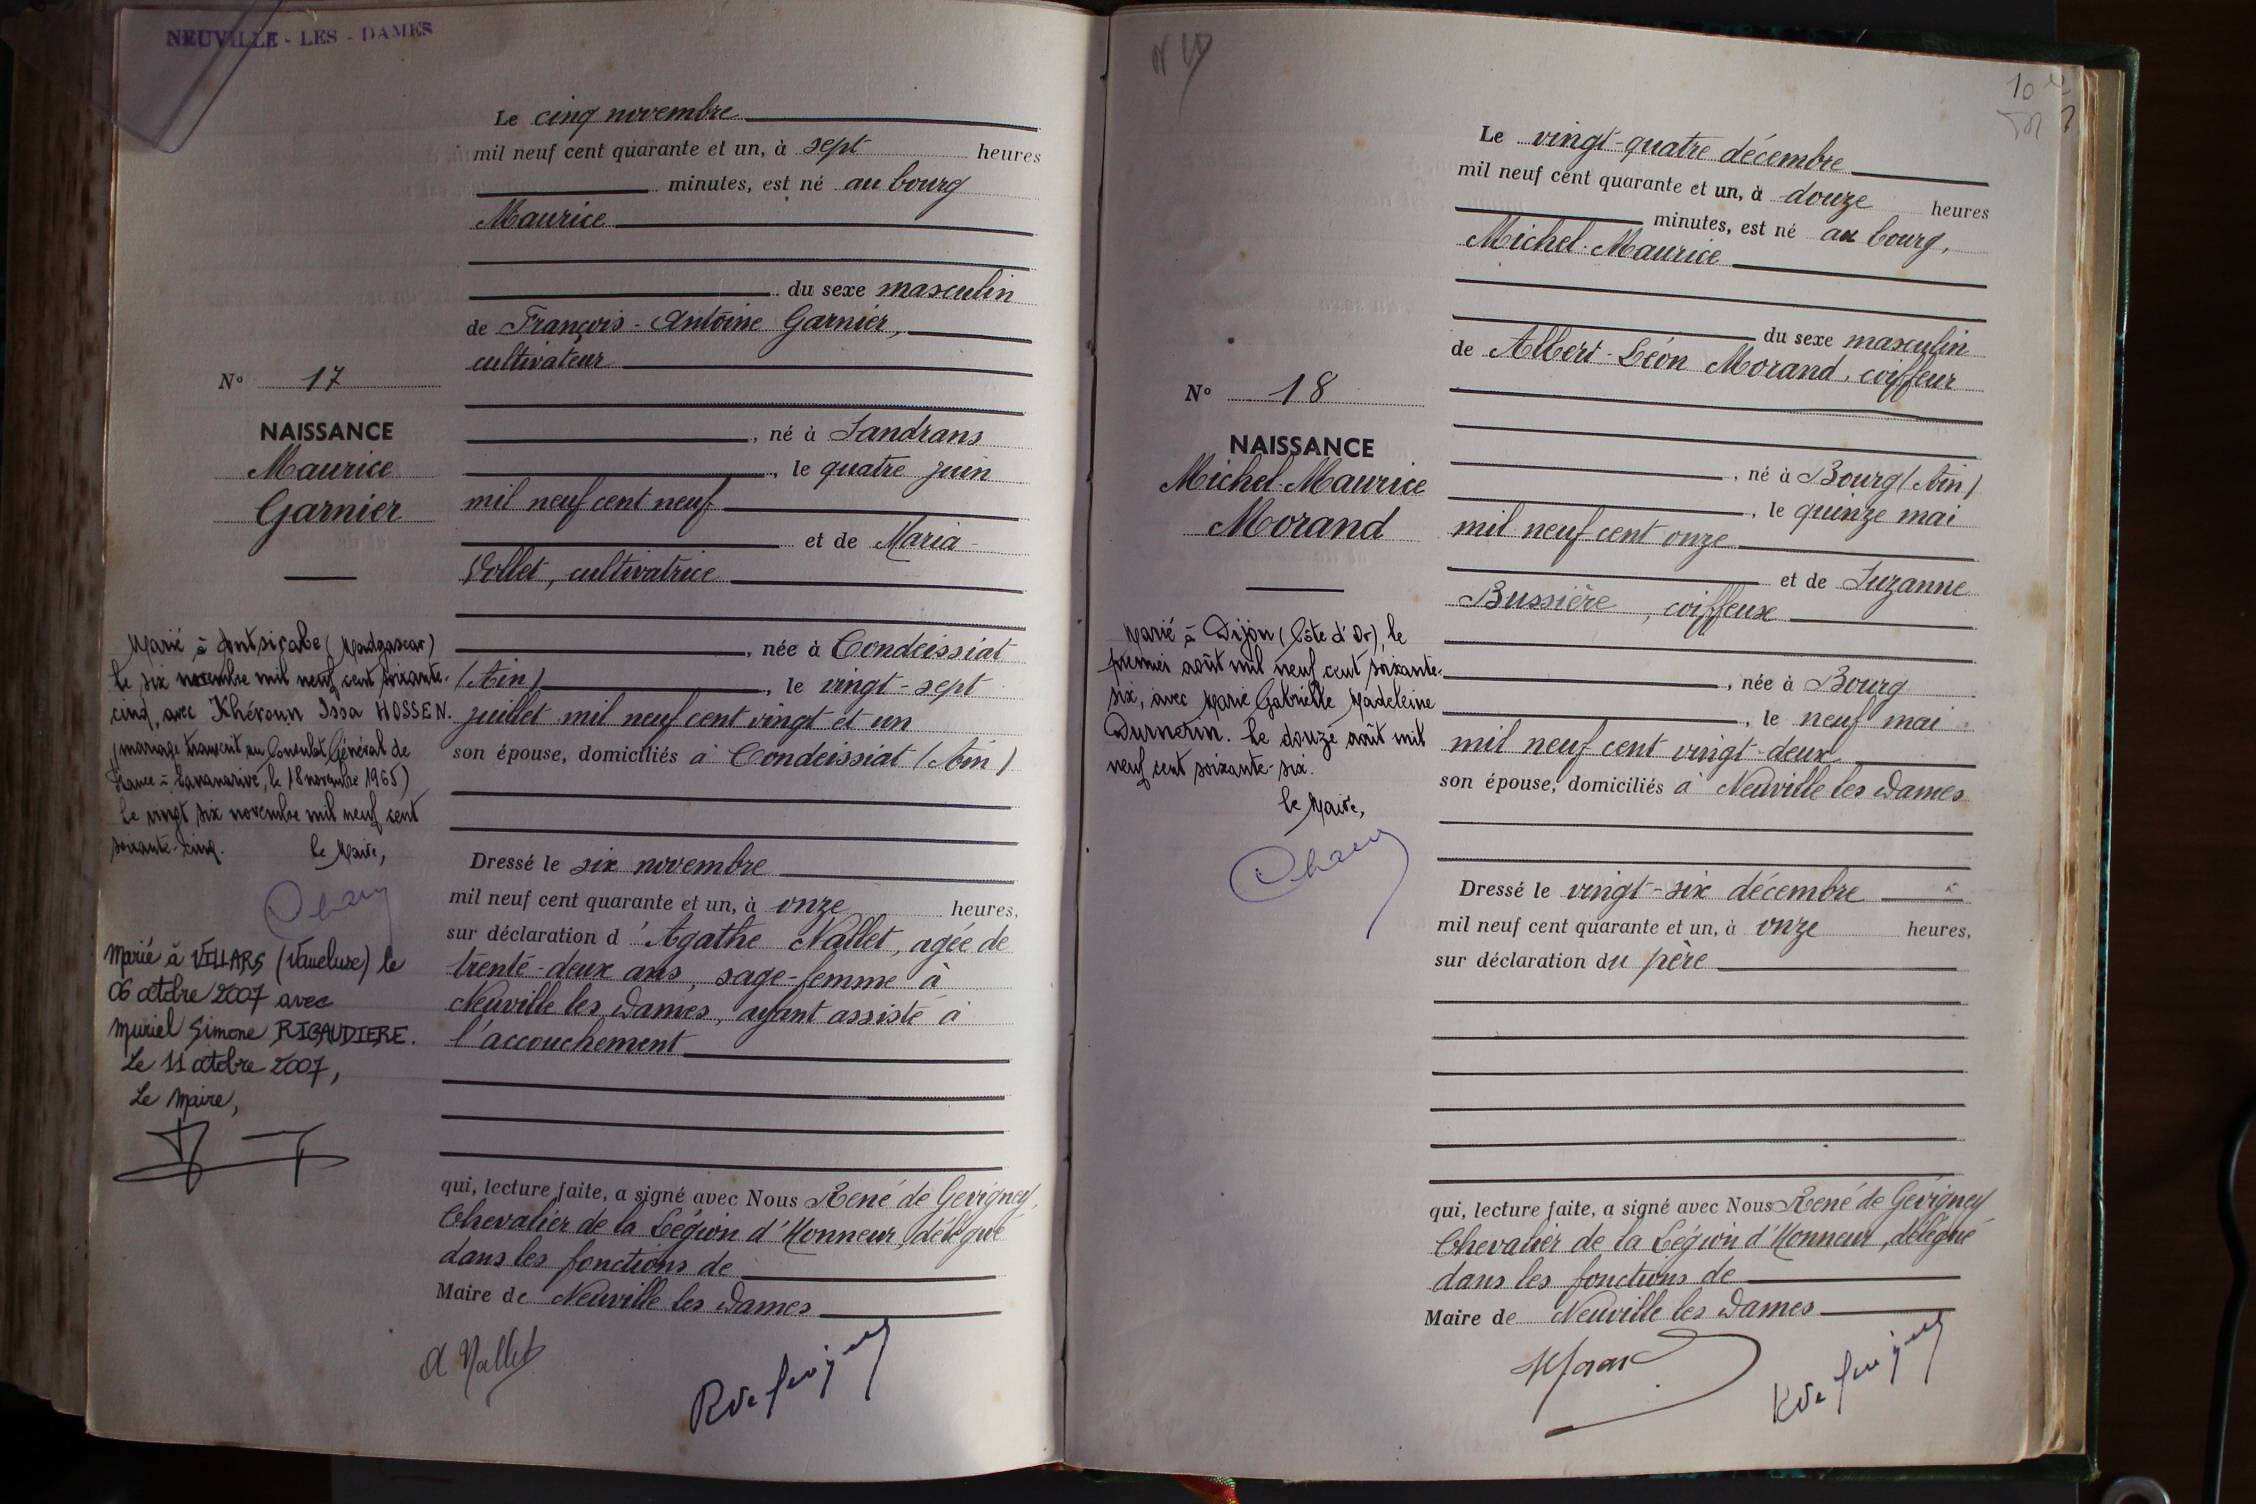 NEUVILLE - LES - DAMES
Le cinq novembre
mil neuf cent quarante et un, à sept heures
minutes, est né au bourg
Maurice
du sexe masculin
de François - Antoine Garnier,
cultivateur
N° 17
NAISSANCE
Maurice
Garnier
, né à Sandrans
, le quatre juin
mil neuf cent neuf
et de Maria
Vollet, cultivatrice
, née à Condeissiat
(Ain) , le vingt - sept
juillet mil neuf cent vingt et un
son épouse, domiciliés à Condeissiat (Ain)
Marié à Antsirabe (Madagascar)
le six novembre mil neuf cent soixante-
cinq, avec Khéroun Issa HOSSEN.
(mariage transcrit au Consulat Général de
France à Tananarive, le 18 novembre 1965)
le vingt six novembre mil neuf cent
soixante-cinq. le Maire,
Marié à VILLARS (Vaucluse) le
06 octobre 2007 avec
Muriel Simone RIGAUDIERE.
Le 11 octobre 2007,
Le Maire,
Dressé le six novembre
mil neuf cent quarante et un, à onze heures,
sur déclaration d'Agathe Nallet, agée de
trente-deux ans, sage-femme à
Neuville les Dames, ayant assisté à
l'accouchement
qui, lecture faite, a signé avec Nous René de Gevigney,
Chevalier de la Légion d'Honneur, délégué
dans les fonctions de
Maire de Neuville les Dames
A Nallet
R de Gevigney
10
Le vingt-quatre décembre
mil neuf cent quarante et un, à douze heures
minutes, est né au bourg,
Michel-Maurice
du sexe masculin
de Albert-Léon Morand, coiffeur
N° 18
NAISSANCE
Michel-Maurice
Morand
, né à Bourg (Ain)
, le quinze mai
mil neuf cent onze
et de Suzanne
Bussière, coiffeuse
, née à Bourg
, le neuf mai
mil neuf cent vingt-deux
son épouse, domiciliés à Neuville les Dames
Marié à Dijon (Côte d'Or), le
premier août mil neuf cent soixante-
six, avec Marie Gabrielle Madeleine
Durnerin. Le douze août mil
neuf cent soixante-six.
le Maire,
Dressé le vingt-six décembre
mil neuf cent quarante et un, à onze heures,
sur déclaration du père
qui, lecture faite, a signé avec Nous René de Gévigney
Chevalier de la Légion d'Honneur, délégué
dans les fonctions de
Maire de Neuville les Dames
Morand
R de Gevigney